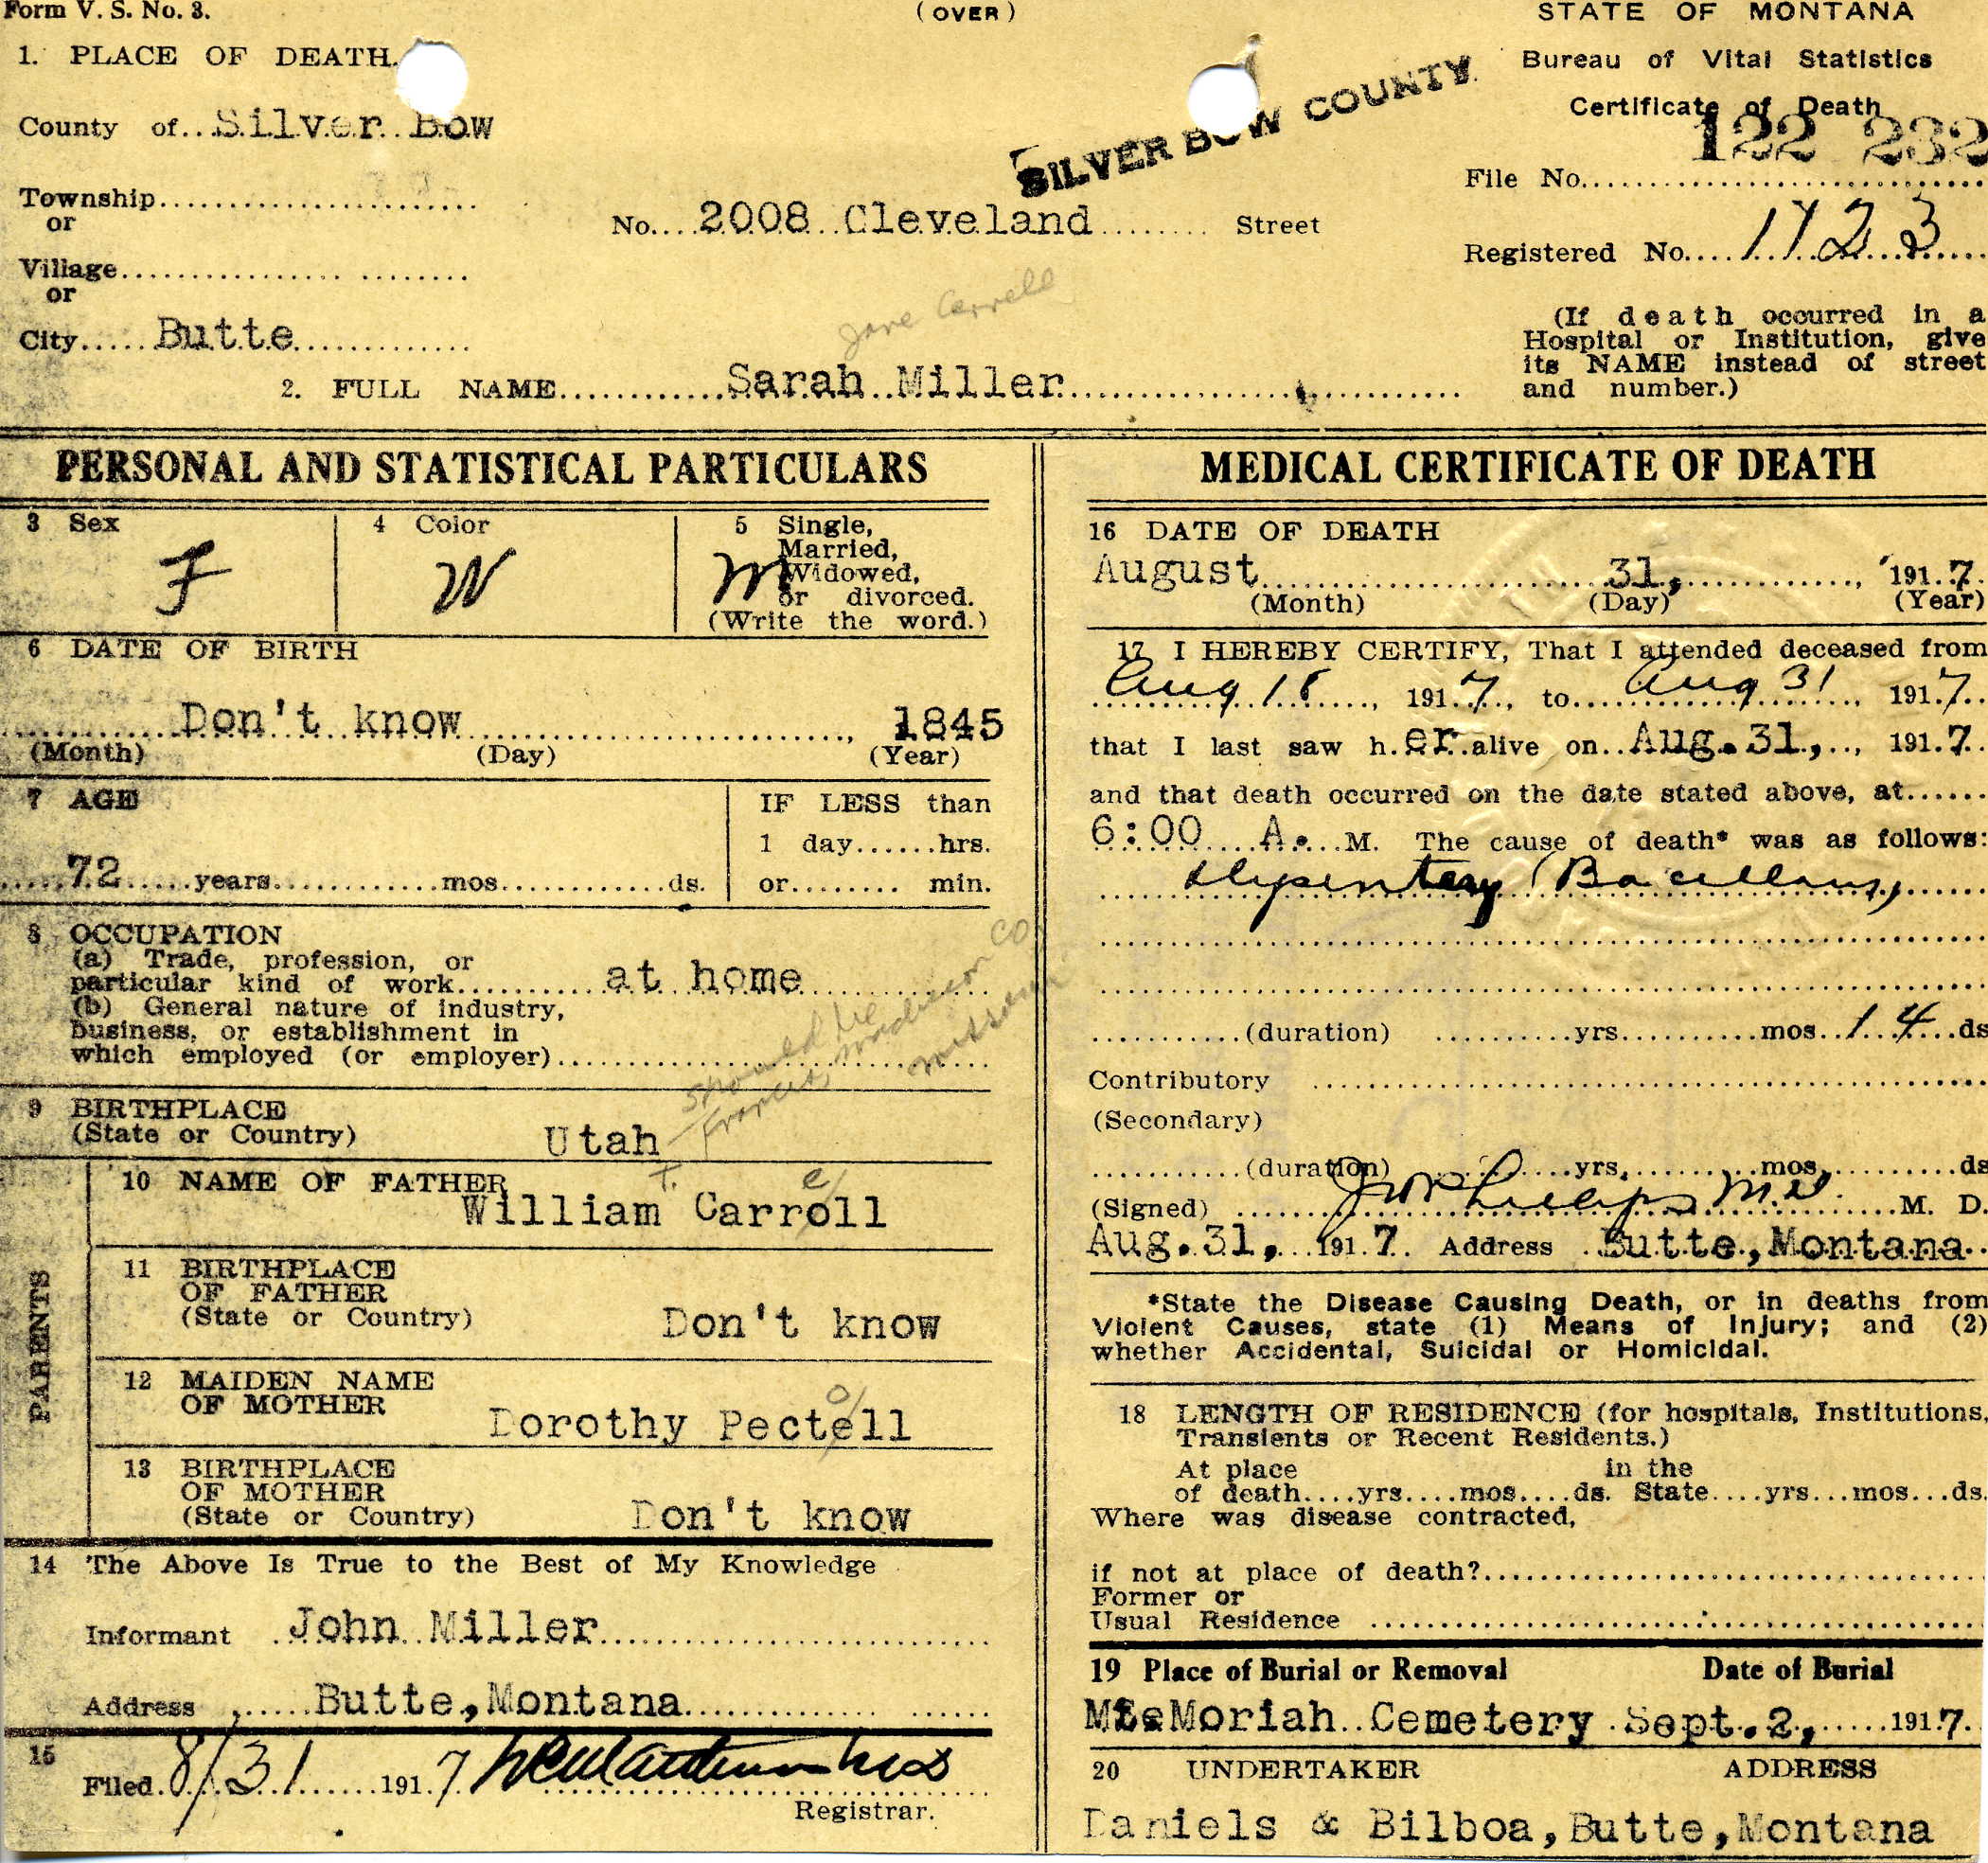 Form V. S. No. 3.
(OVER)
STATE OF MONTANA
Bureau of Vital Statistics
Certificate of Death
1. PLACE OF DEATH.
SILVER BOW COUNTY
County of Silver Bow
122 232
File No.
Township
or
No. 2008 Cleveland Street
Registered No. 1723
Village
or
City Butte
Jane Carrell
(If death occurred in a
Hospital or Institution, give
its NAME instead of street
and number.)
2. FULL NAME Sarah Miller
PERSONAL AND STATISTICAL PARTICULARS
3 Sex
F
4 Color
W
5 Single,
Married,
Widowed,
or divorced.
(Write the word.)
M
6 DATE OF BIRTH
Don't know, 1845
(Month) (Day) (Year)
7 AGE
72 years mos. ds.
IF LESS than
1 day hrs.
or min.
8 OCCUPATION
(a) Trade, profession, or
particular kind of work at home
(b) General nature of industry,
business, or establishment in
which employed (or employer)
should be Madison Co
Francis, Missouri
9 BIRTHPLACE
(State or Country) Utah
PARENTS
10 NAME OF FATHER
William T. Carroll e
11 BIRTHPLACE
OF FATHER
(State or Country) Don't know
12 MAIDEN NAME
OF MOTHER
Dorothy Pectell o
13 BIRTHPLACE
OF MOTHER
(State or Country) Don't know
14 The Above Is True to the Best of My Knowledge
Informant John Miller
Address Butte, Montana
15
Filed 8/31 1917
Registrar.
MEDICAL CERTIFICATE OF DEATH
16 DATE OF DEATH
August 31, 1917
(Month) (Day) (Year)
17 I HEREBY CERTIFY, That I attended deceased from
Aug 18, 1917, to Aug 31, 1917
that I last saw her alive on Aug. 31, 1917
and that death occurred on the date stated above, at
6:00 A. M. The cause of death* was as follows:
Dysentery (Bacillary)
(duration) yrs mos 14 ds
Contributory
(Secondary)
(duration) yrs. mos. ds
(Signed) M.D. M. D.
Aug. 31, 1917. Address Butte, Montana
*State the Disease Causing Death, or in deaths from
Violent Causes, state (1) Means of Injury; and (2)
whether Accidental, Suicidal or Homicidal.
18 LENGTH OF RESIDENCE (for hospitals, Institutions,
Transients or Recent Residents.)
At place in the
of death yrs mos ds. State yrs mos ds.
Where was disease contracted,
if not at place of death?
Former or
Usual Residence
19 Place of Burial or Removal Date of Burial
Mt. Moriah Cemetery Sept. 2, 1917.
20 UNDERTAKER ADDRESS
Daniels & Bilboa, Butte, Montana